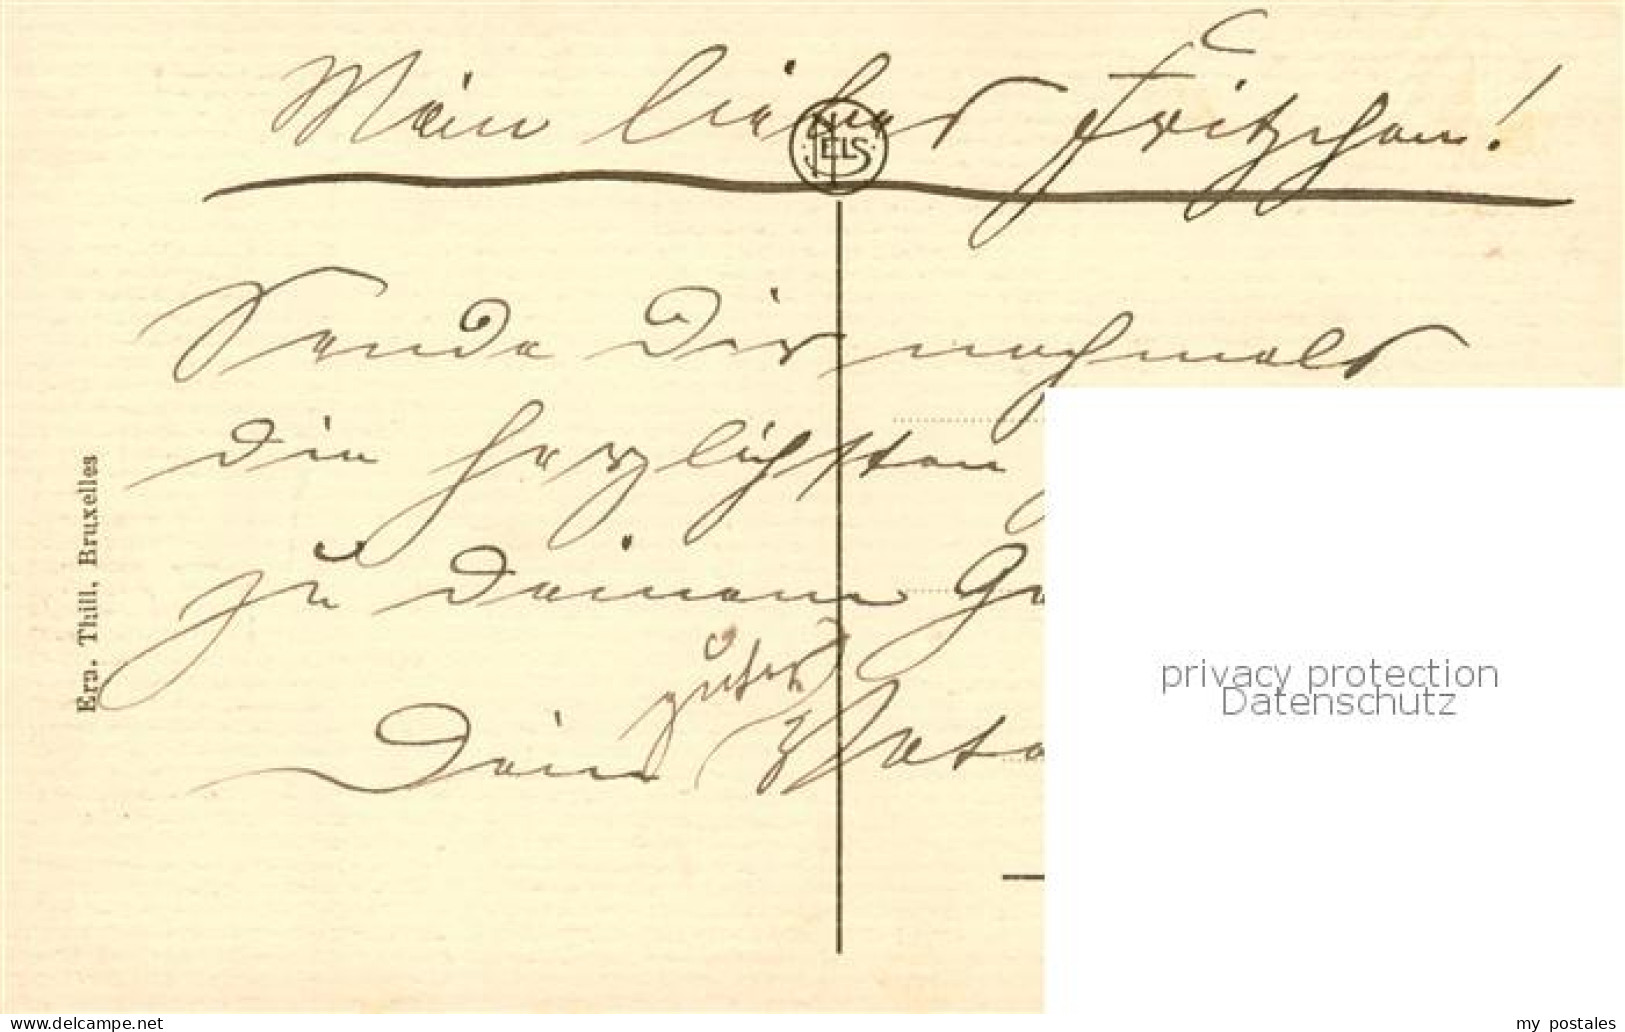 Mein lieber Fritzchen!
NELS
Sende Dir nochmals
die herzlichsten
zu deinem Ge
guter
Dein Vate
Ern. Thill, Bruxelles
privacy protection
Datenschutz
www.delcampe.net
my_postales